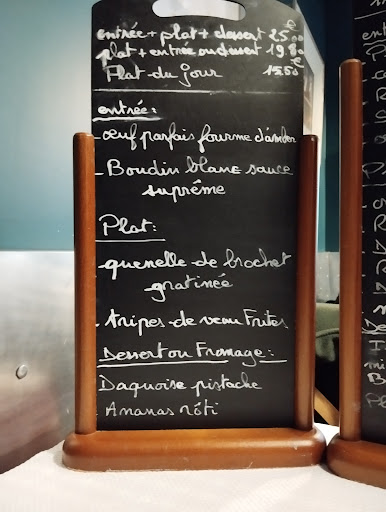 entrée + plat + dessert 25.00€
plat + entrée ou dessert 19.80
Plat du jour 15.50€
entrée:
- œuf parfais fourme d'amber
- Boudin blanc sauce
suprême
Plat:
- quenelle de brochet
gratinée
- tripes de veau Frites
Dessert ou Fromage:
Daquoise pistache
- Ananas rôti